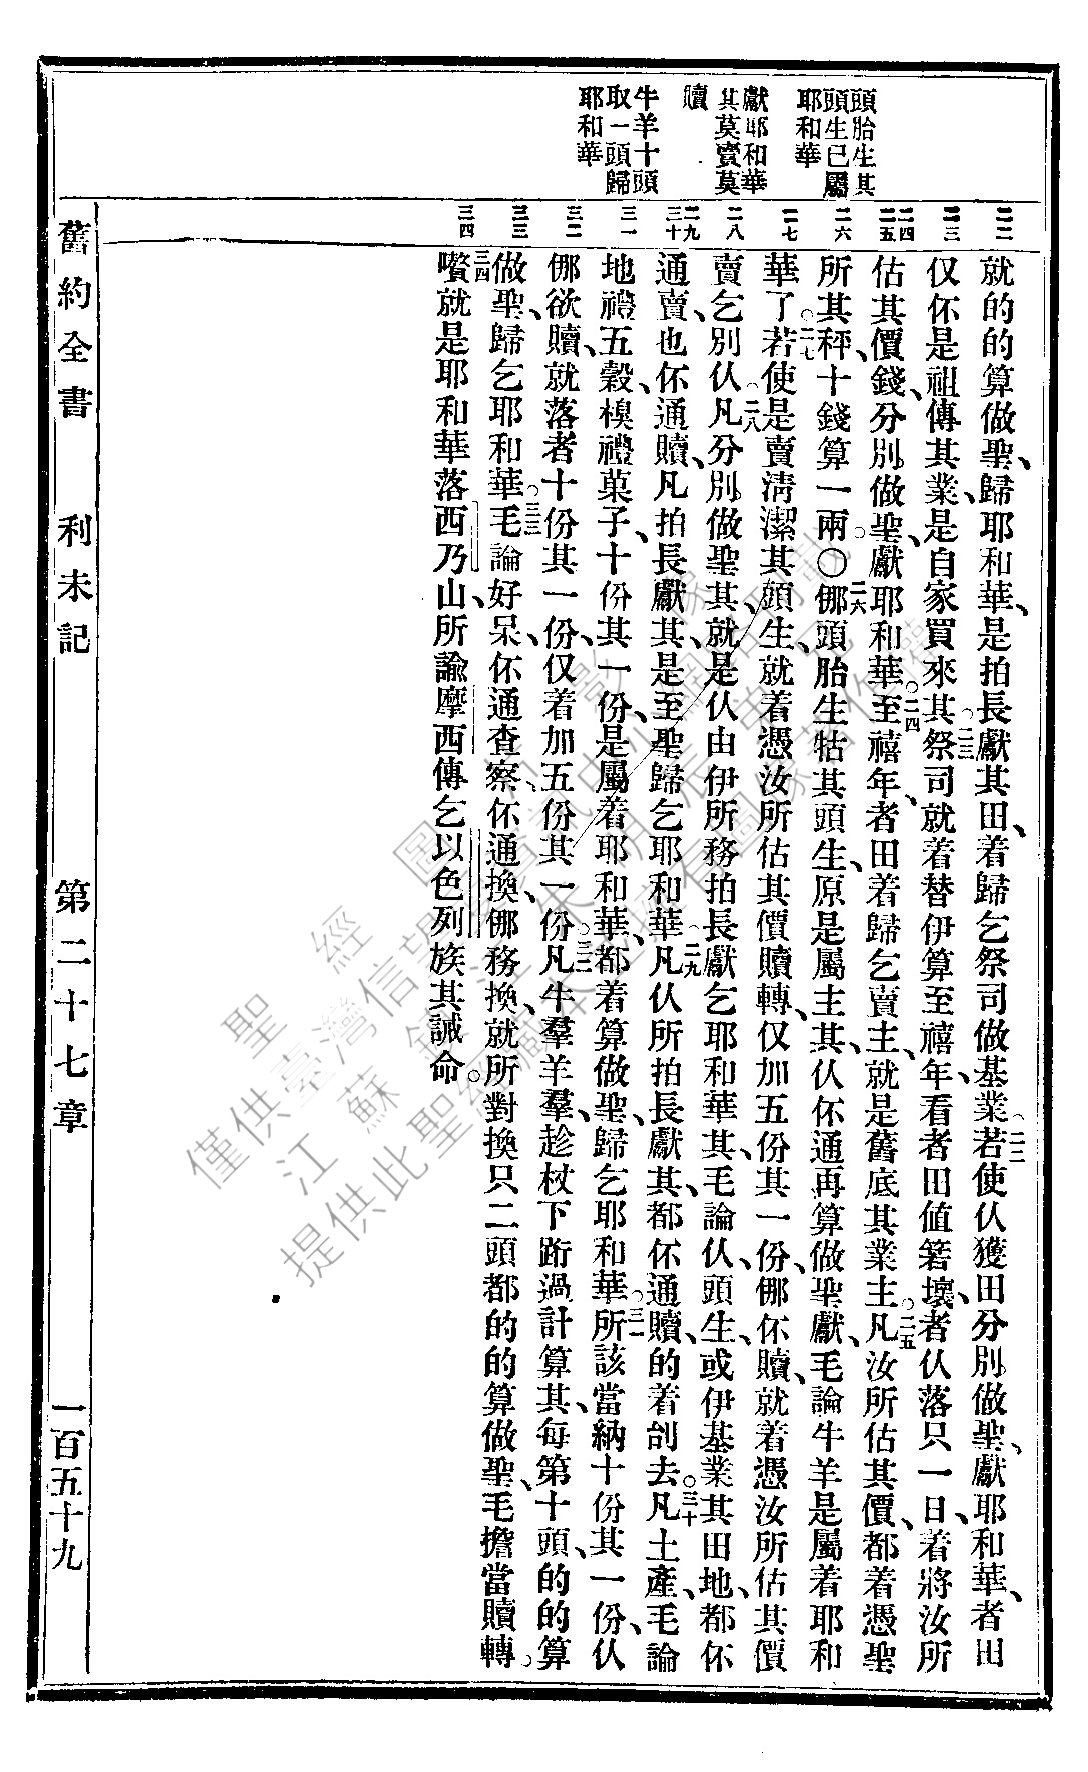 頭胎生其
頭生已屬
耶和華
獻耶和華
其莫賣莫
贖
牛羊十頭
取一頭歸
耶和華
二二
二三
二四
二五
二六
二七
二八
二九
三十
三一
三二
三三
三四
就的的算做聖、歸耶和華、是拍長獻其田、着歸乞祭司做基業。二二若使仈獲田分別做聖、獻耶和華、者田
仅伓是祖傳其業、是自家買來其。二三祭司就着替伊算至禧年、看者田値箬壞、者仈落只一日、着將汝所
估其價錢、分別做聖、獻耶和華。二四至禧年、者田着歸乞賣主、就是舊底其業主。二五凡汝所估其價、都着憑聖
所其秤、十錢算一兩〇二六㑚頭胎生牯其頭生、原是屬主其、仈伓通再算做聖獻、毛論牛羊是屬着耶和
華了。二七若使是賣淸潔其頭生、就着憑汝所估其價贖轉、仅加五份其一份、㑚伓贖、就着憑汝所估其價
賣乞別仈。二八凡分別做聖其、就是仈由伊所務拍長獻乞耶和華其、毛論仈頭生、或伊基業其田地、都伓
通賣、也伓通贖、凡拍長獻其、是至聖歸乞耶和華。二九凡仈所拍長獻其、都伓通贖、的着刣去。三十凡土產、毛論
地禮五穀、模禮菓子、十份其一份、是屬着耶和華、都着算做聖、歸乞耶和華。三一所該當納十份其一份、仈
㑚欲贖、就落者十份其一份、仅着加五份其一份。三二凡牛羣羊羣、趁杖下跡過計算其、每第十頭、的的算
做聖、歸乞耶和華。三三毛論好呆、伓通查察、伓通換、㑚務換、就所對換只二頭都的的算做聖、毛擔當贖轉。
三四嚽就是耶和華落西乃山、所諭摩西傳乞以色列族其誡命。
舊約全書 利未記 第二十七章 一百五十九
聖經圖書影像
僅供臺灣信望愛資訊中心聯合印刷
江蘇鎮江朱明居典足
提供此聖經藏本並擁有圖像著作權